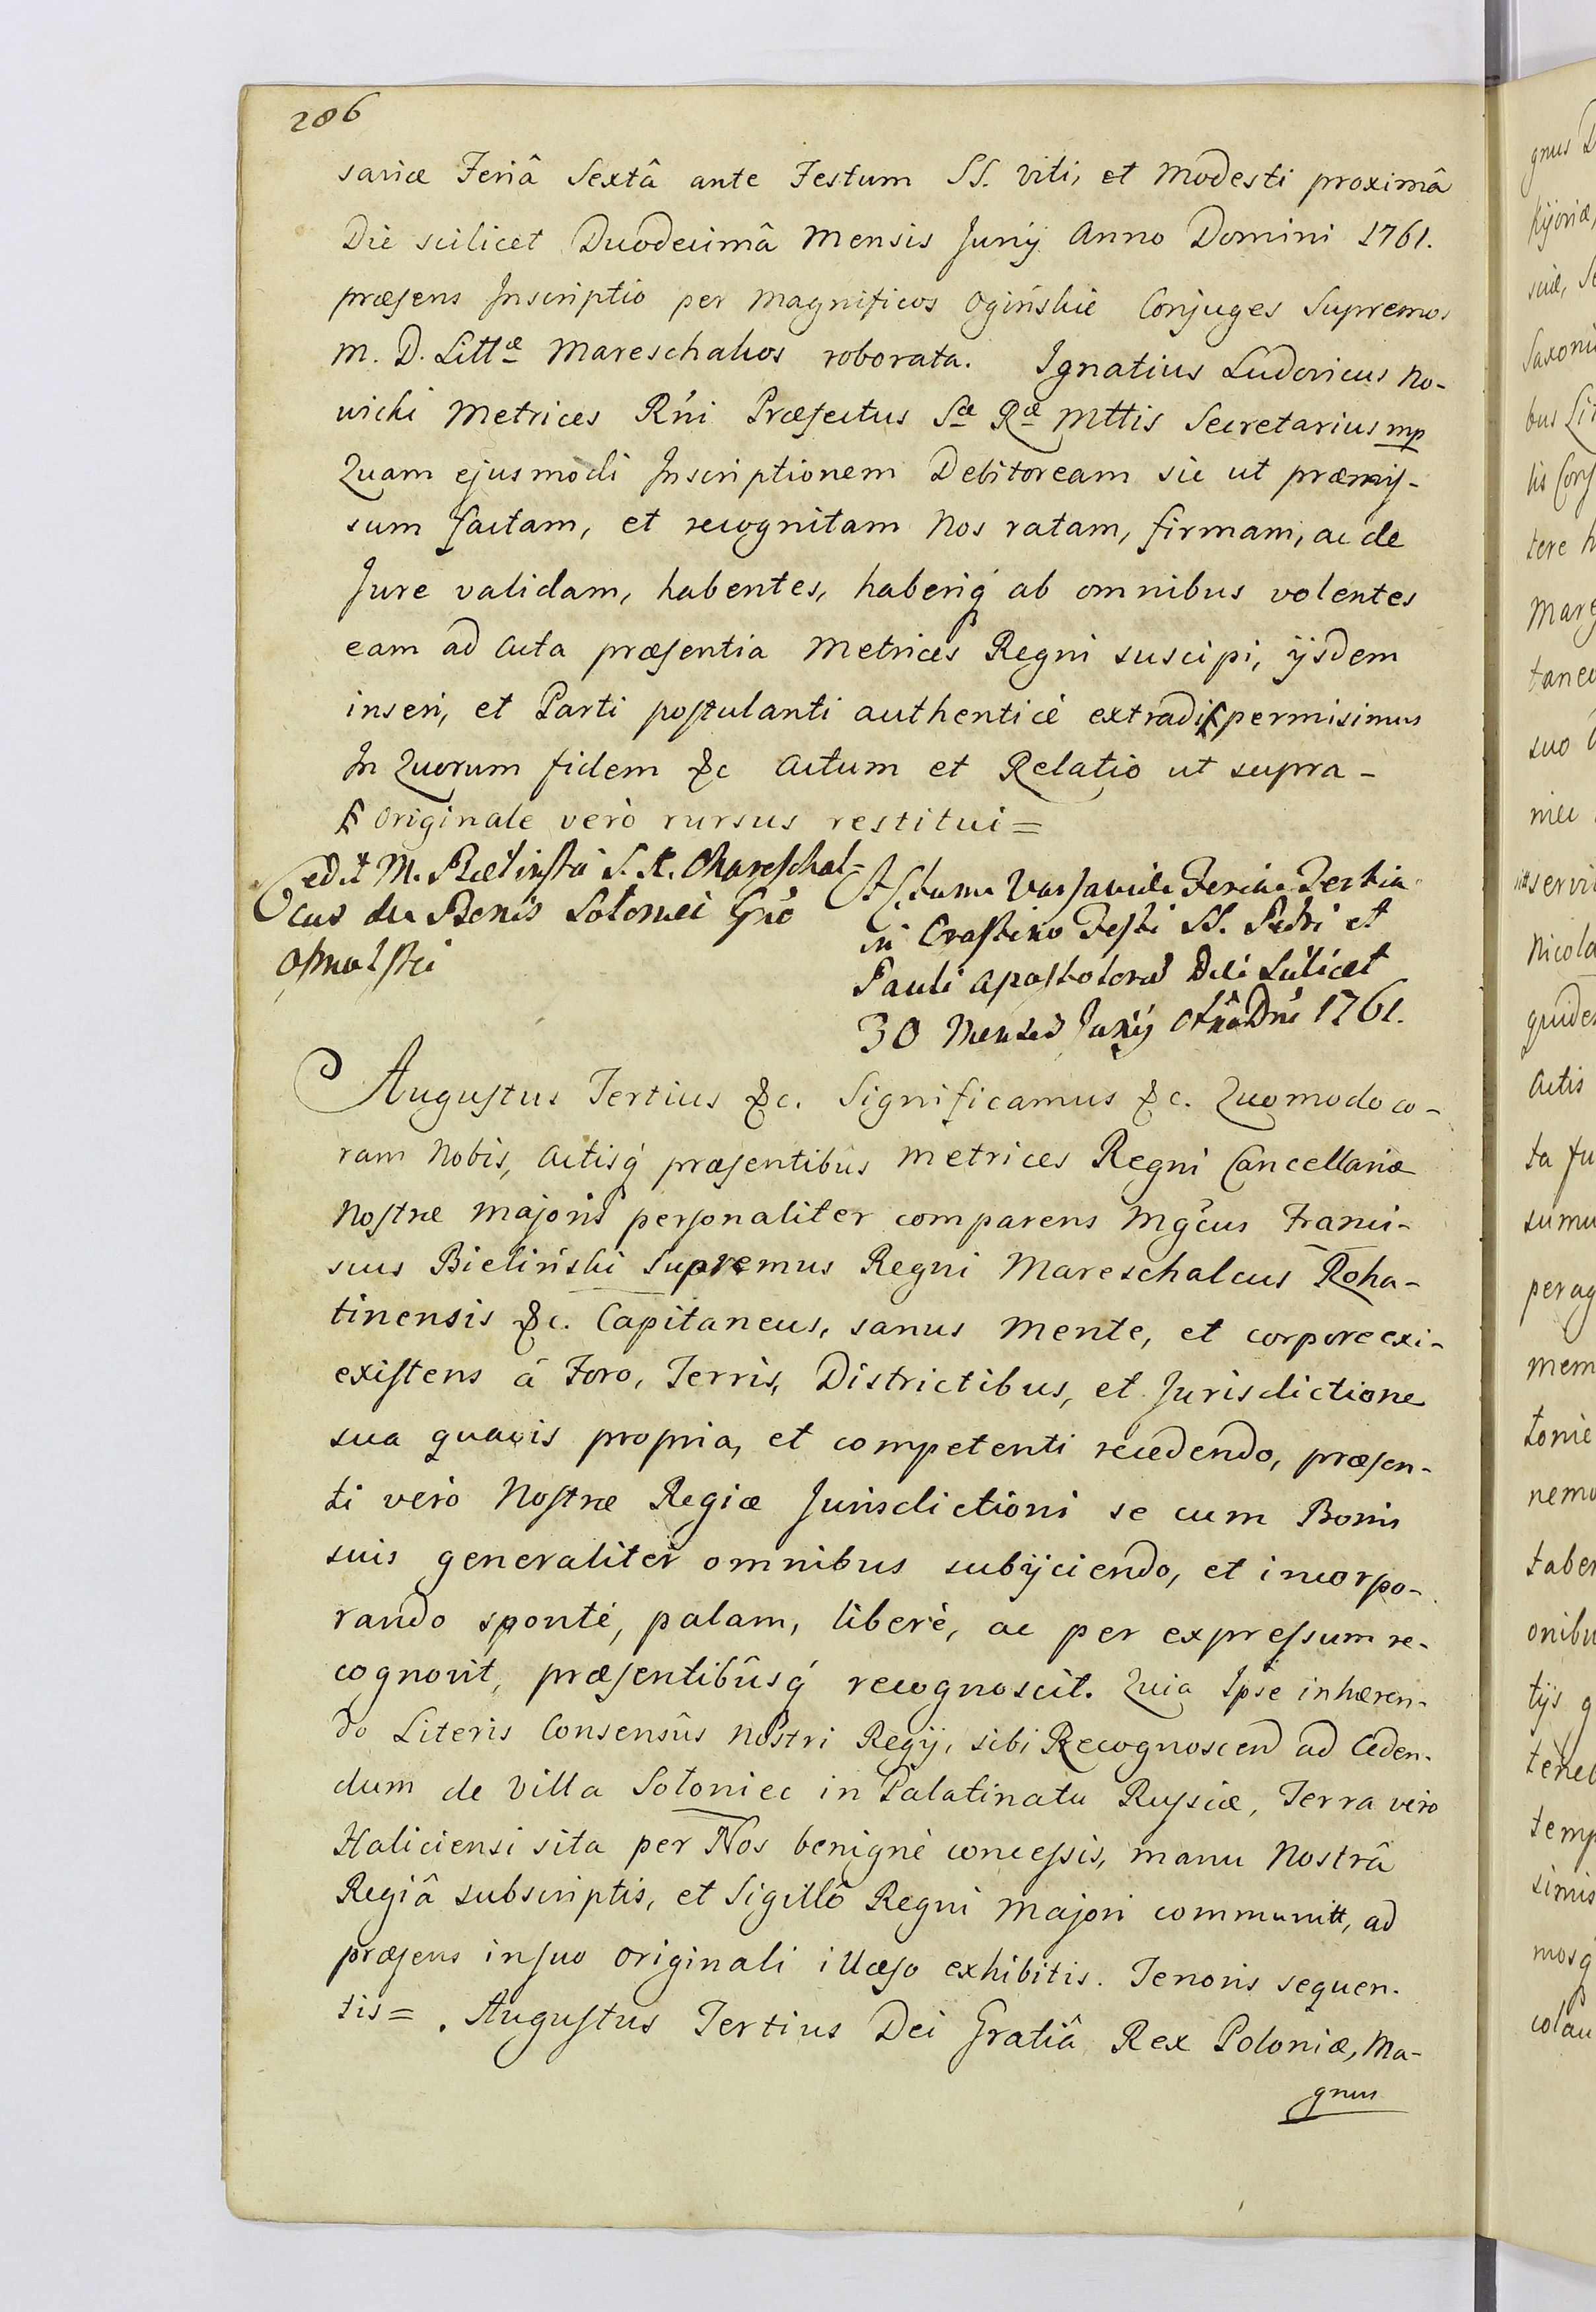 286
sariæ Feriâ Sextâ ante Festum SS. Viti, et Modesti proximâ
Die scilicet Duodecimâ Mensis Junÿ Anno Domini 1761.
præsens Inscriptio per Magnificos Ogińskie Conjuges Supremos
M. D. Littæ Mareschalcos roborata. Ignatius Ludovicus No-
wicki Metrices Rńi Præfectus Sæ Ræ Mttis Secretarius mp
Quam ejusmodi Inscriptionem Debitoream sic ut præmis-
sum factam, et recognitam Nos ratam, firmam, ac de
Jure validam, habentes, haberiq́ ab omnibus volentes
eam ad Acta præsentia Metrices Regni suscipi, ÿsdem
inseri, et Parti postulanti authenticè extradi permisimus
In Quorum fidem &c Actum et Relatio ut supra -
Originale verò rursus restitui =
Cedit M. Bielinski S. R. Mareschal-
cus de Bonis Sołoniec Gńo
Actum Varsaviæ Feria Tertia
in Crastino Festi SS. Petri et
Pauli Apostolorũ Die Scilicet
30 Mensis Junÿ Año Dńi 1761.
Augustus Tertius &c. Significamus &c. Quomodo co-
ram Nobis, Actisq́ præsentibûs Metrices Regni Cancellariæ
Nostræ Majoris personaliter comparens Mgćus Franci-
scus Bieliński Supremus Regni Mareschalcus Roha-
tinensis &c. Capitaneus, sanus mente, et corpore exi-
existens à Foro, Terris, Districtibus, et Jurisdictione
sua quavis propria, et competenti recedendo, præsen-
ti verò Nostræ Regiæ Jurisdictioni se cum Bonis
suis generaliter omnibus subÿciendo, et incorpo-
rando spontè, palam, liberè, ac per expressum re-
cognovit, præsentibûsq́ recognoscit. Quia Ipse inhæren-
do Literis Consensûs Nostri Regÿ, sibi Recognoscen ad Ceden-
dum de Villa Sołoniec in Palatinatu Russiæ, Terra vero
Haliciensi sita per Nos benignè concessis, manu Nostrâ
Regiâ subscriptis, et Sigillô Regni Majori communitt, ad
præsens in suo Originali illæso exhibitis. Tenoris sequen-
tis = . Augustus Tertius Dei Gratiâ Rex Poloniæ, Ma-
gnus